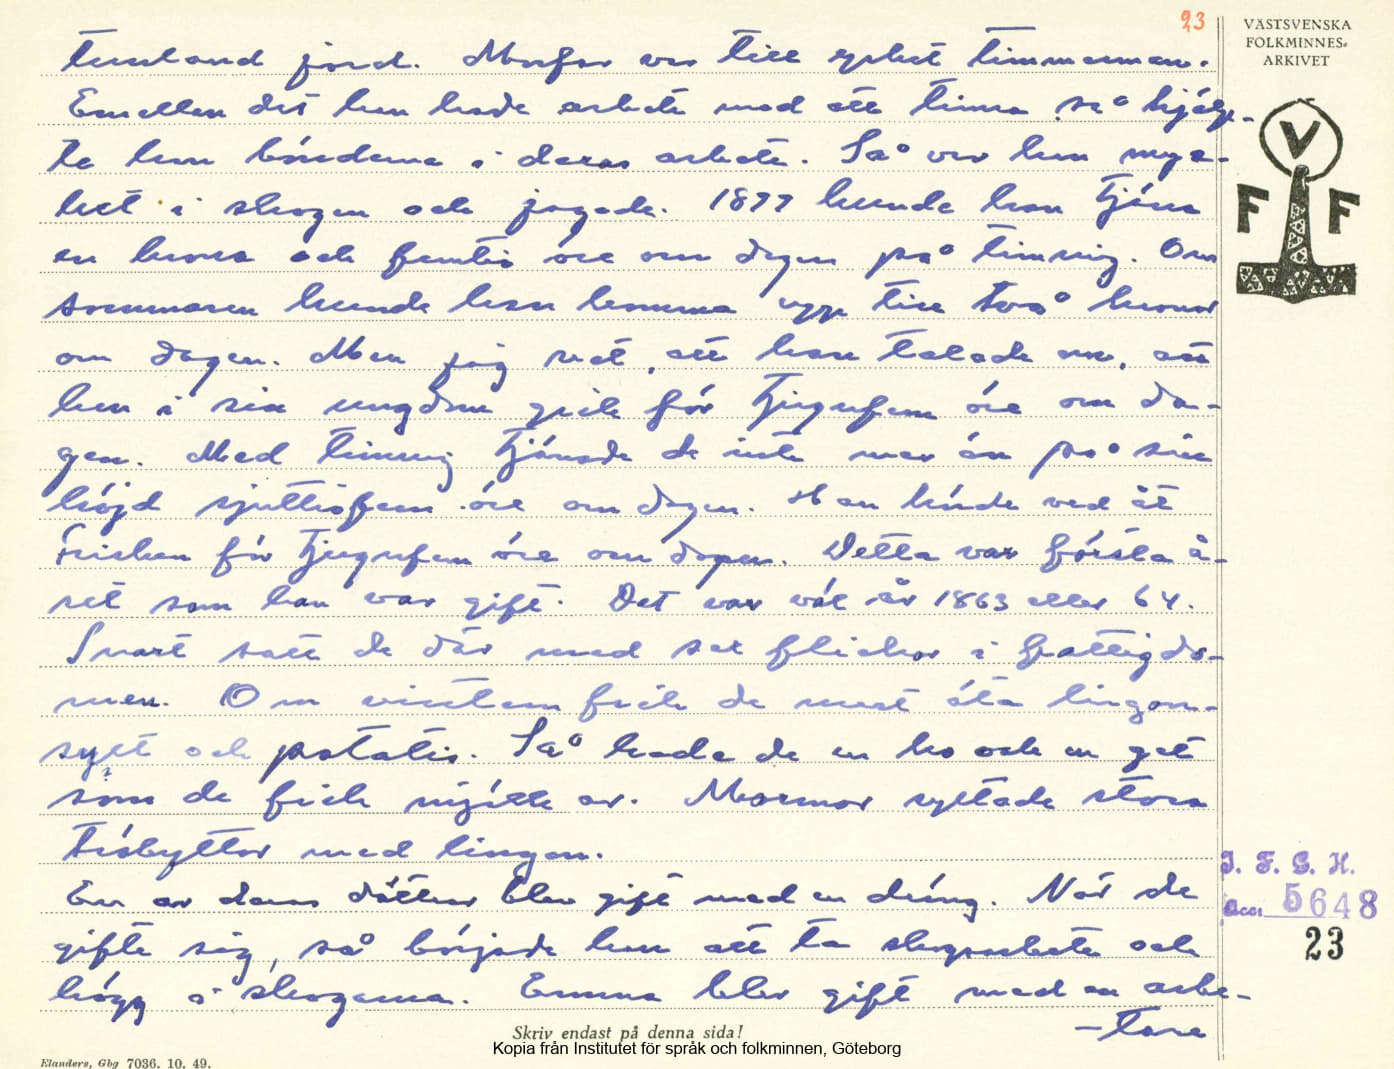 23
VÄSTSVENSKA
FOLKMINNES-
ARKIVET
tunland jord. Morfar var till yrket timmerman.
Emellan det han hade arbete med att timra så hjälp-
te han bönderna i deras arbete. Så var han myc-
ket i skogen och jagade. 1877 kunde han tjäna
en krona och femtio öre om dagen på timring. Om
sommaren kunde han komma upp till två kronor
om dagen. Men jag vet, att han talade om, att
han i sin ungdom gick för tjugufem öre om da-
gen. Med timring tjänade de inte mer än på sin
höjd sjuttiofem öre om dagen. Han körde ved åt
Frisken för tjugufem öre om dagen. Detta var första å-
ret som han var gift. Det var väl år 1863 eller 64.
Snart satt de där med sex flickor i fattigdo-
men. Om vintern fick de mest äta lingon-
sylt och potatis. Så hade de en ko och en get
som de fick mjölk av. Mormor syltade stora
träbyttor med lingon.
En av deras döttrar blev gift med en dräng. När de
gifte sig, så började han att ta skogsarbete och
högg i skogarna. Emma blev gift med en arbe-
-tare
V
F F
I. F. G. H.
Acc. 5648
23
Skriv endast på denna sida!
Kopia från Institutet för språk och folkminnen, Göteborg
Elanders, Gbg 7036. 10. 49.